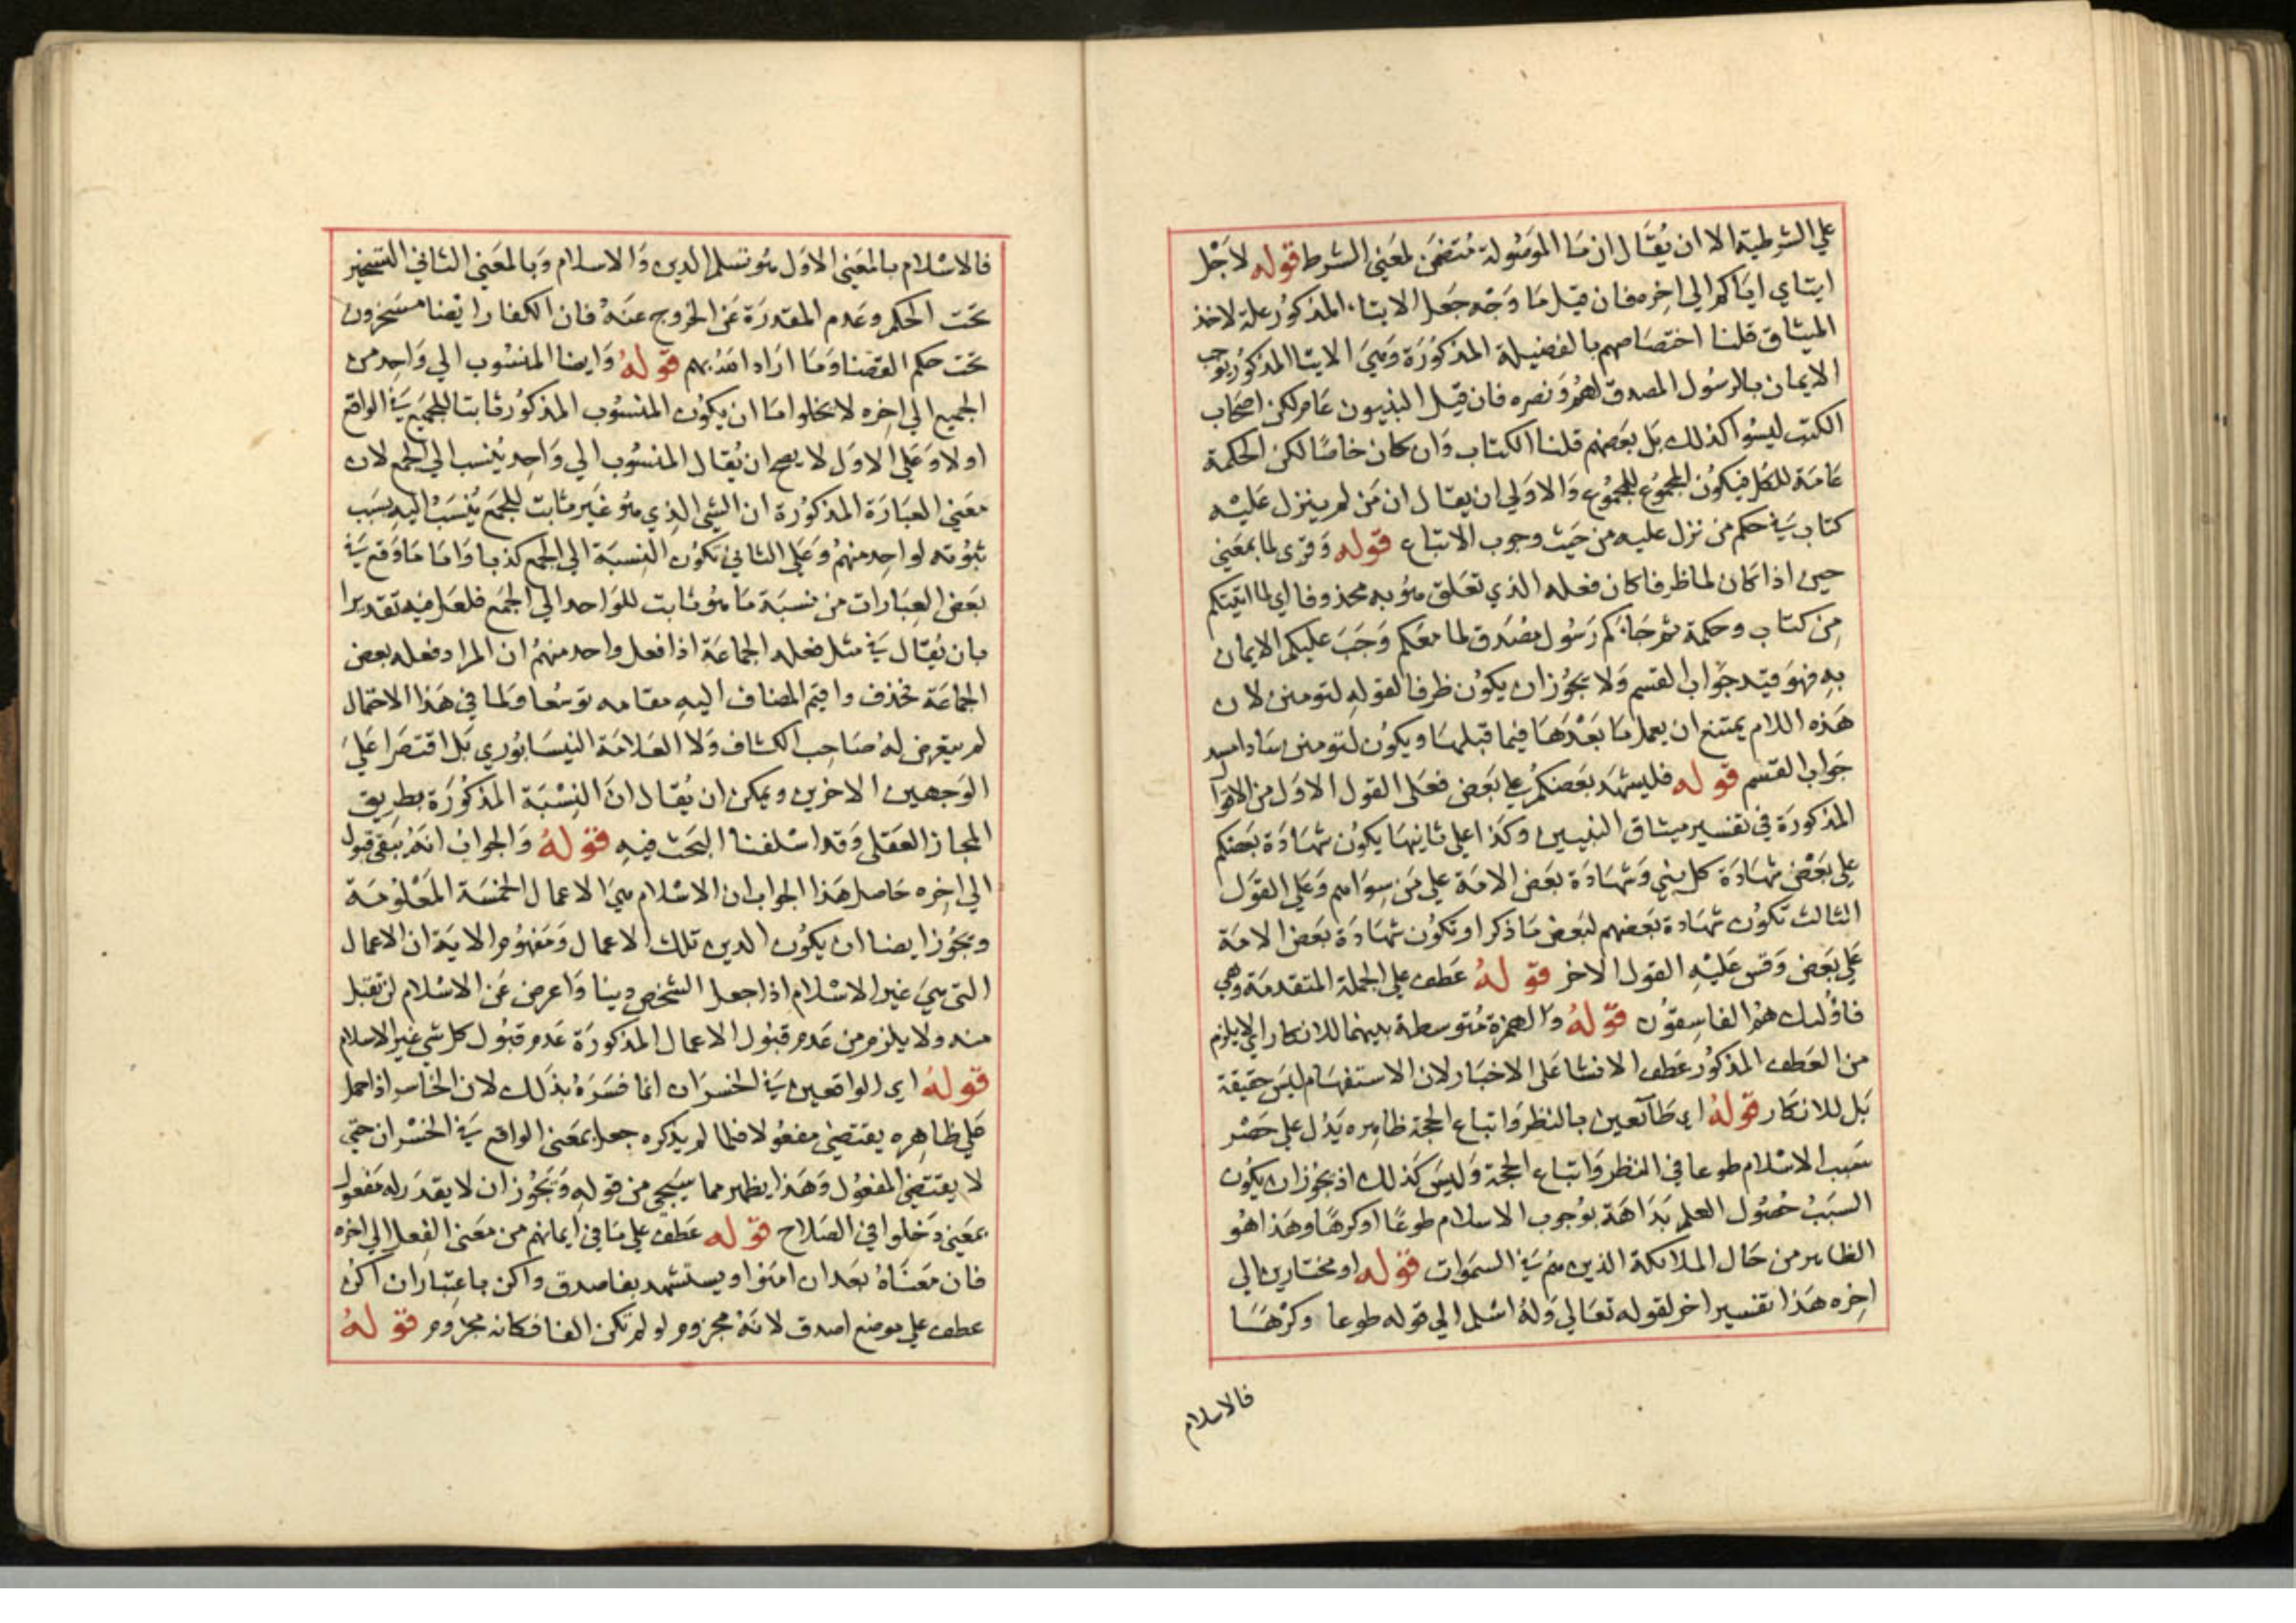 علي الشرطية الا ان يُقَال ان مَا الموَصُولة مُتضمَن لمعَني الشرط قوله لاَجْل
ايتاي اياكم الي اخِره فان قيل مَا وَجْه جَعل الايتاء المذكوُر علة لاخذ
الميثاق قلنا اختصَاصهم بالفضيلة المذكوُرَة وَهيَ الايتا المذكوُر يوجب
الايمان بالرسُول المصدق لهمُ وَنصره فان قيل النبيون عَام لكن اصحَاب
الكتبِ ليسُوا كذلك بَل بعَضهم قلنا الكتاب وَان كان خاصًا لكن الحكمة
عَامَة للكل فيكوُن المجموُع للمجموُع وَالاوَلي ان يقال ان مَن لم ينزل عَليْه
كتاب في حكم من نزل عليه من حَيث وجوب الاتباع قوله وَقرى لما بمعَني
حين اذا كان لما ظرفا كان فعله الذي تعَلق هُو به محذوفا اي لما اتيتكم
مِن كتاب وحكمة ثم جَاءكم رَسُول مصَدق لما معَكم وَجَبَ عليكم الايمان
بهِ فهوَ قيد جَواب القسم وَلا يجوُز ان يكوُن ظرفا لقولهِ لتومنن لان
هَذه اللام يمتنع ان يعمل مَا بَعْدَهَا فيما قبلهَا ويكوُن لتومنن سَادا مسد
جَواب القسم قوله فليشهَد بعَضكمُ علي بعَض فعَلي القول الاوَل من الاقوال
المذكورَة في تفسير ميثاق النبيين وكذا علي ثانيهَا يكوُن شهَادَة بعَضكم
علي بَعْض شهَادَة كل نبي وَشهَادَة بعَض الامَة علي مَن سِوَاهم وَعَلي القوَل
الثالث تكوُن شهَادة بعَضهم لبعَض مَا ذكر او تكوُن شهَادَة بعَض الامَة
عَلي بعَض وَقس عَليْهِ القول الاخر قوله عَطف علي الجملة المتقدمَة وهي
فاوُليك همُ الفاسِقوُن قوله وَالهمزة مُتوسطة بينهما للانكار اي لا يلزم
من العَطف المذكوُر عَطف الانشا عَلي الاخبَار لان الاستفهَام ليسَ حقيقة
بَل للانكار قوله اي طَآئعين بالنظر وَاتباع الحجة ظاهِره يَدُل علي حَصْر
سَبب الاسْلام طوعا في النظر وَاتباع الحجة وَليسَ كذلك اذ يجوُز ان يكوُن
السبَبُ حُصُول العلم بَدَاهَة بوُجوب الاسلام طوعًا اوكرهًا وهَذا هُو
الظاهر من حَال الملائكة الذين هُم في السمَوات قوله او مختارين الي
اخِره هَذا تفسير اخر لقوله تعَالي وَلهُ اسْلم الي قوله طوعا وكرْهًا
فالاسلام
فالاسْلام بالمعَني الاوَل هُو تسلم الدين وَالاسلام وَبالمعَني الثاني التسخير
تحَت الحكم وعَدم المقدرَة عَن الخروج عنَهُ فان الكفار ايضا مسَخرون
تحَت حكم القضا وَمَا ارَاد الله بهم قوله وَايضا المنسُوب الي وَاحِد من
الجميع الي اخِره لا يخلوا امَا ان يكوُن المنسوُب المذكوُر ثابتا للجميَع في الواقع
اولا وَعَلي الاوَل لا يصح ان يُقال المنسُوب الي وَاحِد يُنسب الي الجمع لان
معَني العبَارَة المذكوُرة ان الشي الذِي هُو غَير ثابت للجمَع يُنسَبُ اليهِ بسَبب
ثبُوته لواحِد منهمُ وَعَلي الثاني تكوُن النِسبَة الي الجمع كذبا وَامَا مَا وَقع في
بعَض العبَارات من نسبَة مَا هُو ثابت للوَاحد الي الجمَع فلعَل فيه تقديرا
بان يُقال في مثل فعله الجماعَة اذا فعل واحد منهمُ ان المراد فعله بعض
الجماعَة فحذف واقيم المضاف اليهِ مقامه توسُعا وَلما في هَذا الاحتمال
لم يتعَرض لهُ صَاحِب الكشاف وَلا العَلامَة النيسَابُوري بَل اقتصَرا عَليَ
الوَجهين الاخرين ويمكن ان يُقال انَ النِسْبَة المذكوُرَة بطِريق
المجاز العَقلي وَقد اسْلفنا البَحث فيهِ قوله وَالجواب انهُ يَبقي قبول
الي اخِره حَاصل هَذا الجواب ان الاسْلام هيَ الاعمال الخمسَة المَعْلوُمَة
ويجوُز ايضا ان يكوُن الدين تلك الاعمال وَمَفهوُم الايَة ان الاعمال
التي هيَ غير الاسْلام اذا جعل الشخصْ دينا وَاعرض عَن الاسْلام لن تقبل
منه ولا يلزم من عَدم قبُول الاعمال المذكورَة عَدم قبُول كل شي غير الاسلام
قوله اي الواقعين في الخسرَان انما فسَرَهُ بذَلك لان الخاسر اذا حمل
عَلي ظاهِره يقتضي مفعُولا فلما لم يذكره جعله بمعَني الواقع في الخسْران حتي
لا يقتضي المفعُول وَهَذا يظهر مما سيَجي من قولهِ وَيَجوُز ان لا يقدَر له مَفعول
بمعَني دَخلوا في الصَلاح قوله عَطف علي مَا في ايمانهم من معَني الفِعل الي اخره
فان مَعنَاهُ بعَد ان امَنوا ويستشهد بفاصدق واكن باعِتبار ان اكن
عطف علي موضع اصدق لانَهُ مجزوم لو لم تكن الفا فكانه مجزوم قوله